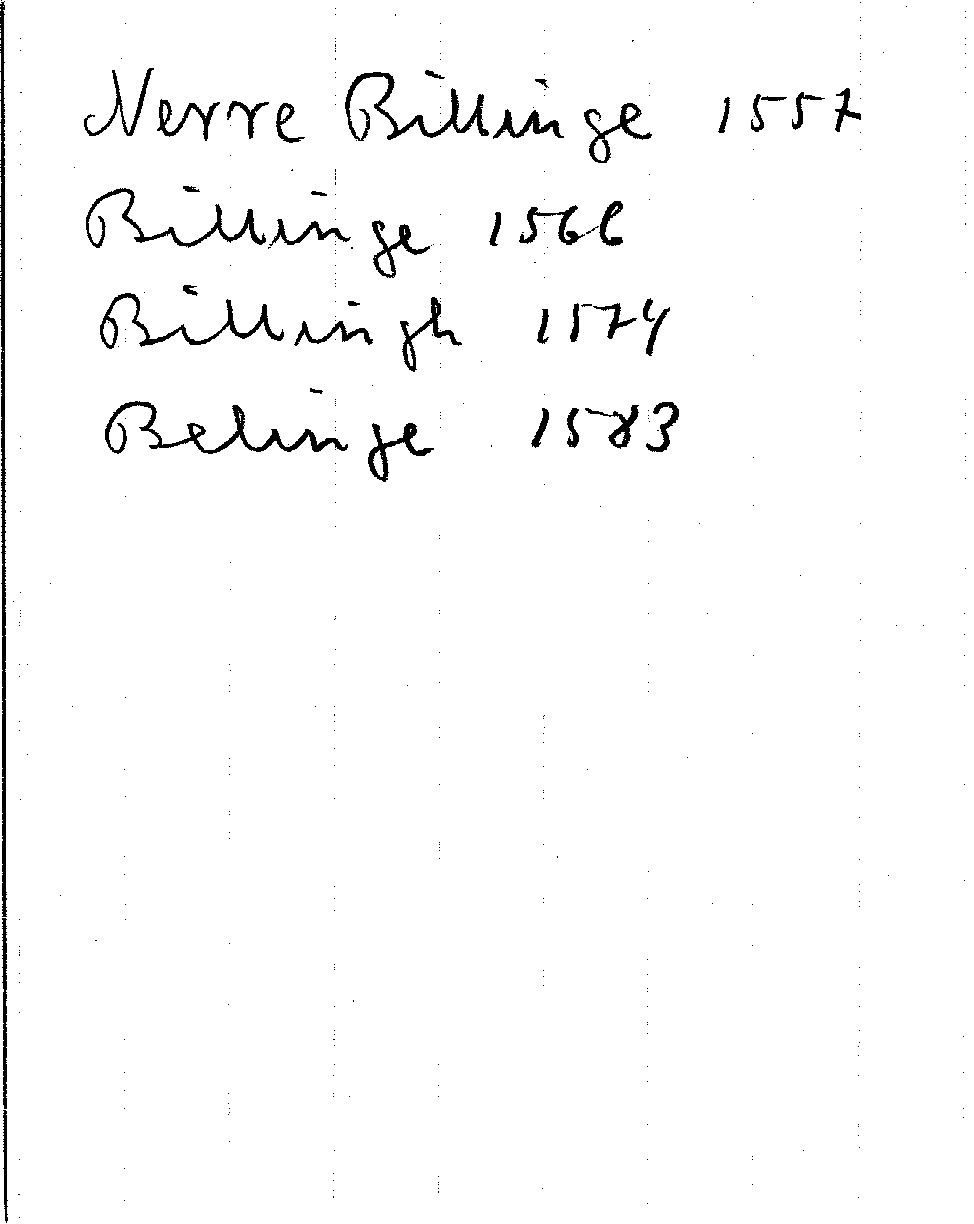 Nerre Billinge 1557
Billinge 1566
Billingh 1574
Belinge 1583